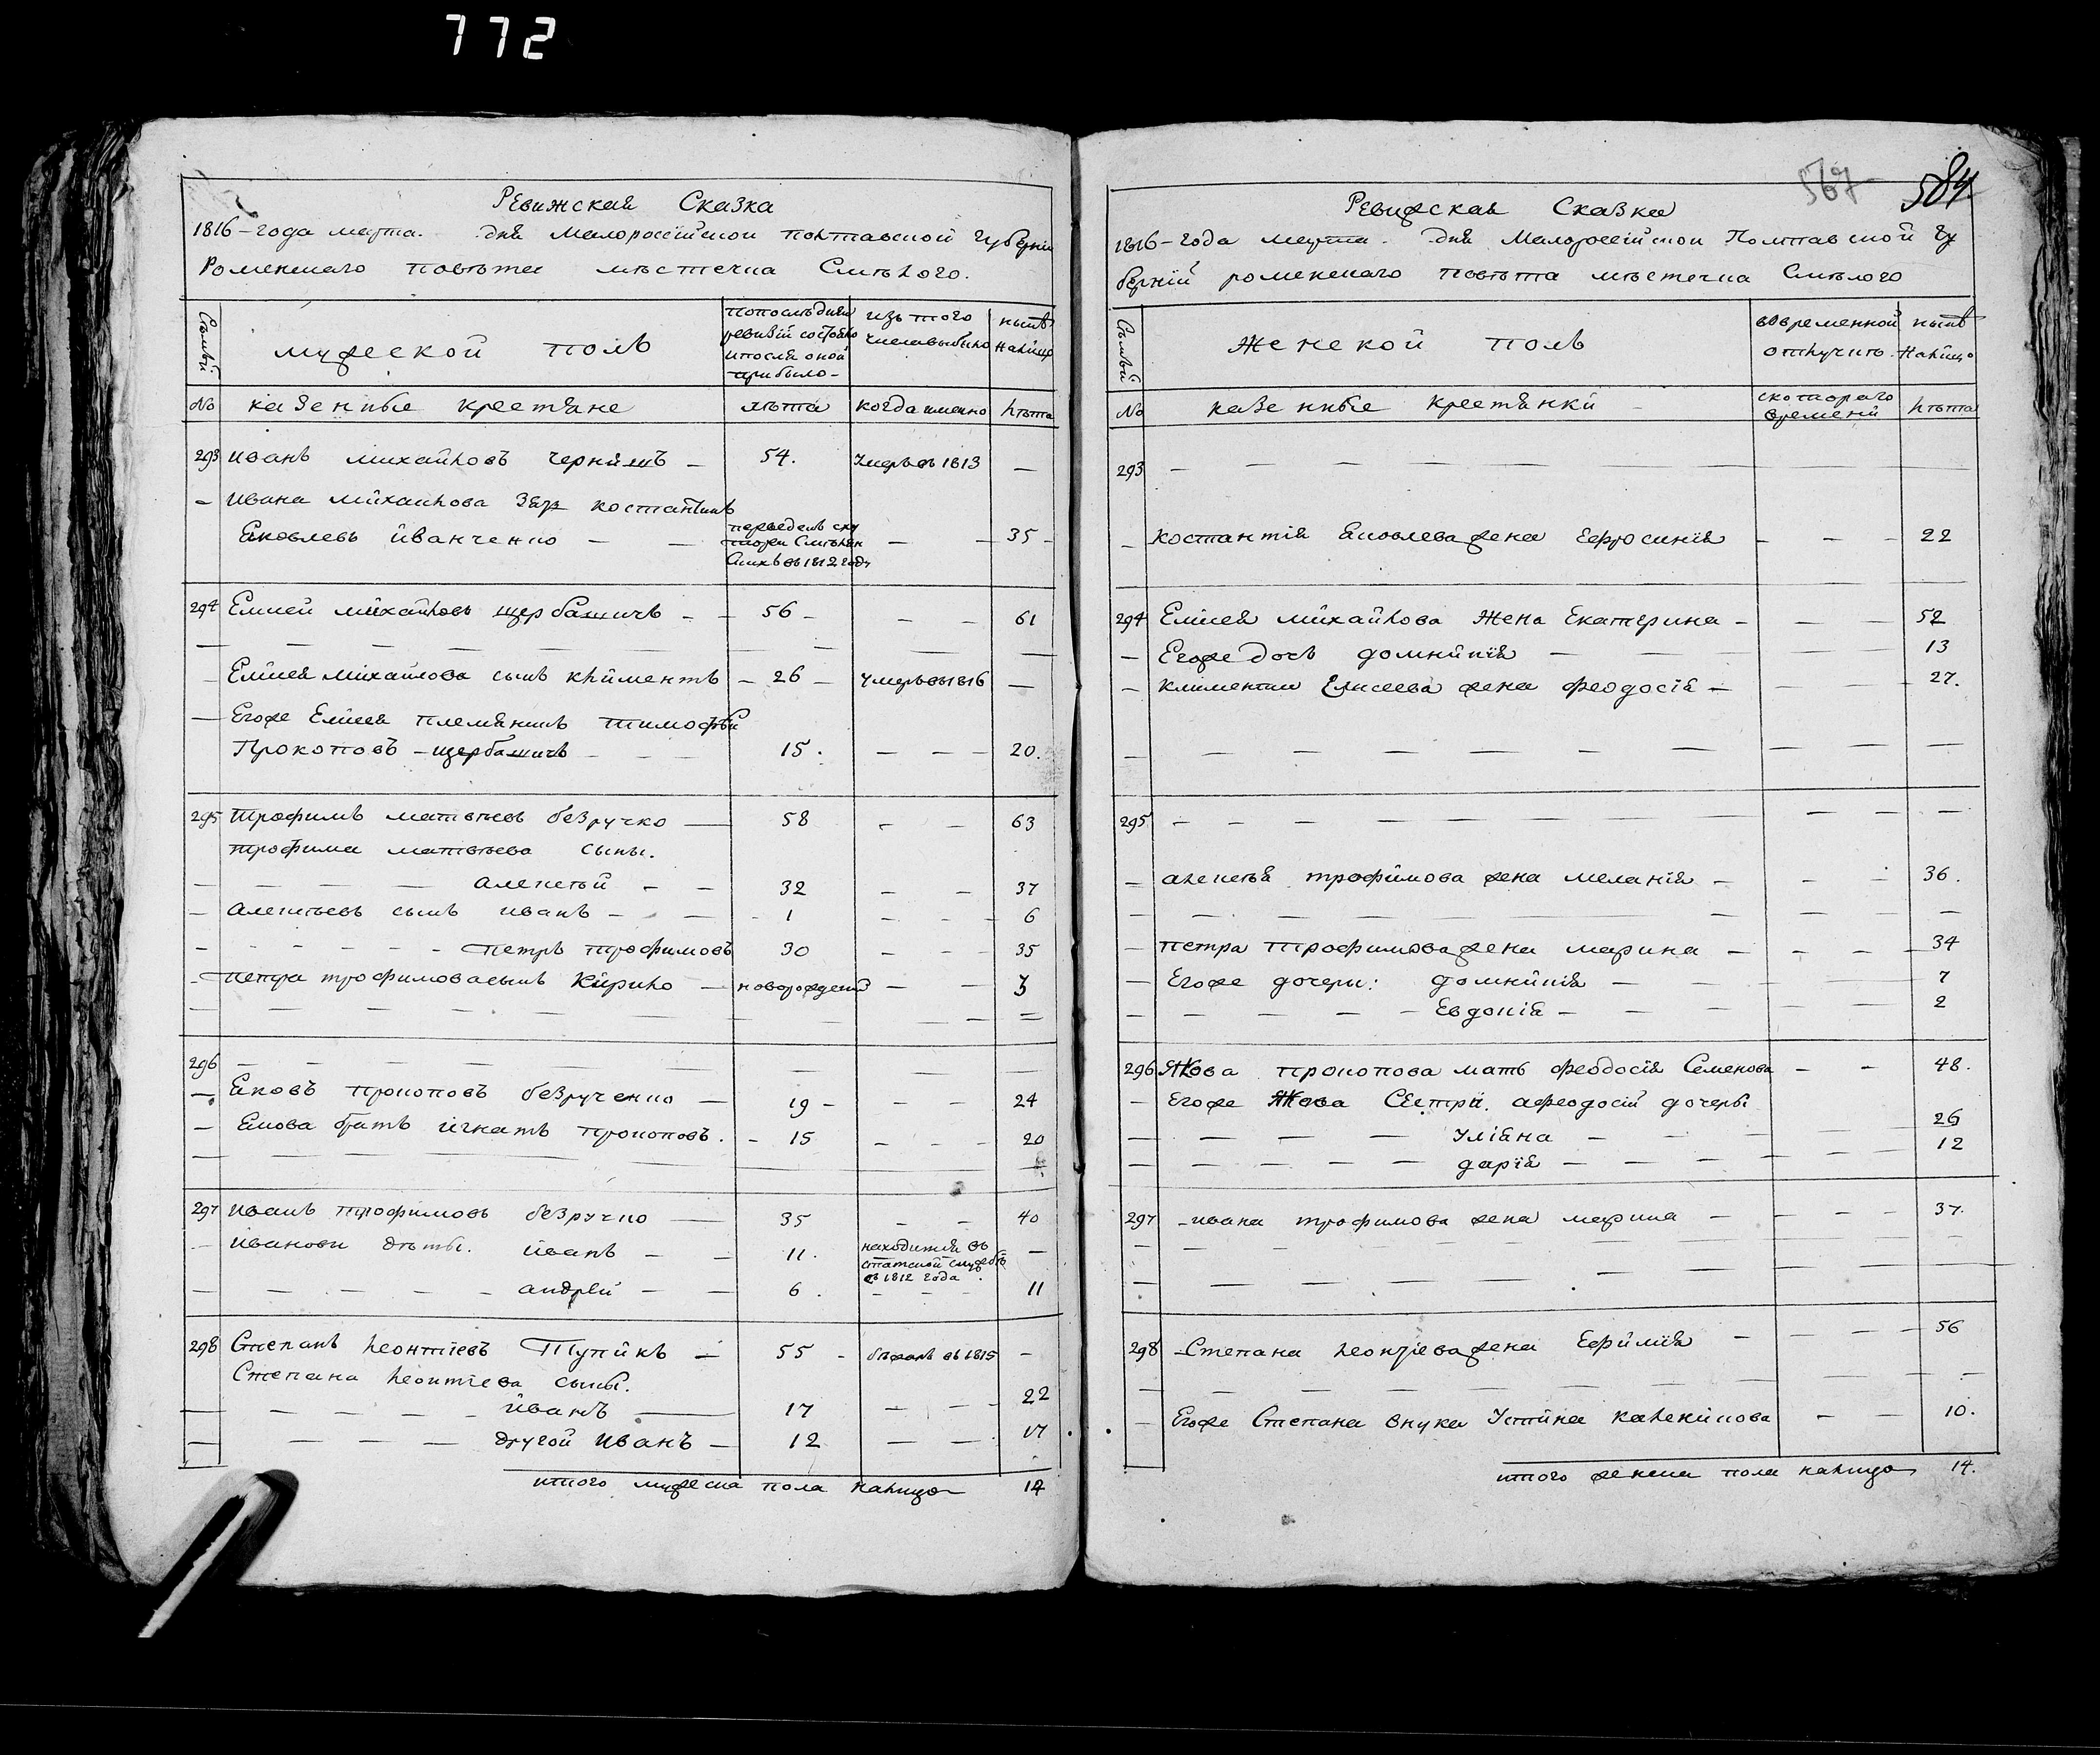 772
Ревижская Сказка
1816-года марта. дня малороссійской полтавской губерніи
Роменскаго повѣта мѣстечка Смѣлого.
Семьи
мужеской полъ
попослѣдней ревизіи состояло и после оной прибыло-
изъ того числа выбыло
нынѣ налицо
№ казенные крестяне лѣта когда имянно лѣта
293 иванъ михайловъ чернишъ - 54. Умеръ въ 1813 -
- ивана михайлова зять костантинъ
Яковлевъ иванченко - - 35 -
294 Елисей михайловъ щербашичъ - - 56 - - - 61
Елисея михайлова сынъ климентъ - 26 - умеръ въ 1816 -
- Егоже Елисея племянникъ тимофѣй
Прокоповъ - щербашичъ - - - 15. - - - 20.
295 трофимъ матвѣевъ безручко - 58 - - 63
трофима матвѣева сыны.
- - - - алексѣй - - 32 - - 37
- алексѣевъ сынъ иванъ - - - 1 - - - 6
- - - - - - петръ трофимовъ 30 - - - 35
- петра трофимова сынъ Кирило - новорожденый - - 3
296 - - - - - - - -
- Яковъ прокоповъ безрученко - 19 - - - - 24
- Якова братъ игнатъ прокоповъ. - 15 - - - 20
297 иванъ трофимовъ безручко - 35 - - 40
- ивановы дѣты. иванъ - - 11. находится въ статской службѣ съ 1812 года -
- - - - - - андрей - - 6. - - - 11
298 Степанъ леонтіевъ Тупикъ - 55 - бѣжалъ въ 1815 -
Степана леонтіева сыны.
- - - - - иванъ - 17 - - - 22
- - - - другой иванъ - 12 - - 17
итого мужеска пола налицо 14
567 584
Ревижская Сказка
1816-года марта. дня Малороссійской Полтавской гу
берніи роменскаго повѣта мѣстечка Смѣлого
Семьи
Женской полъ
вовременной отлучкѣ.
нынѣ налицо
№ казенные крестянки - скотораго времени лѣта
293 - - - - - - - -
- костантія Яковлева жена Ефросинія - - - 22
294 Елисея михайлова жена Екатерина - - - 52
- Егоже дочь домникія - - - - 13
- климентия Елисеева жена феодосія - - - 27.
295 - - - - - - - - -
- алексѣя трофимова жена меланія - - - 36.
- петра трофимова жена марина - - - - 34
- Егоже дочери: домникія - - - - 7
- - - - - Евдокія - - - - - 2
296 Якова прокопова мать феодосія Семенова - - 48.
- Егоже Якова Сестри. афеодосіи дочеры
- - - - Уліяна - - - - 26
- - - - - дарія - - - - - 12
297 - ивана трофимова жена марина - - - - 37.
298 - Степана леонтіева жена Ефимія - - - - 56
- Егоже Степана внука Устина каленикова - - 10.
итого женска пола налицо 14.